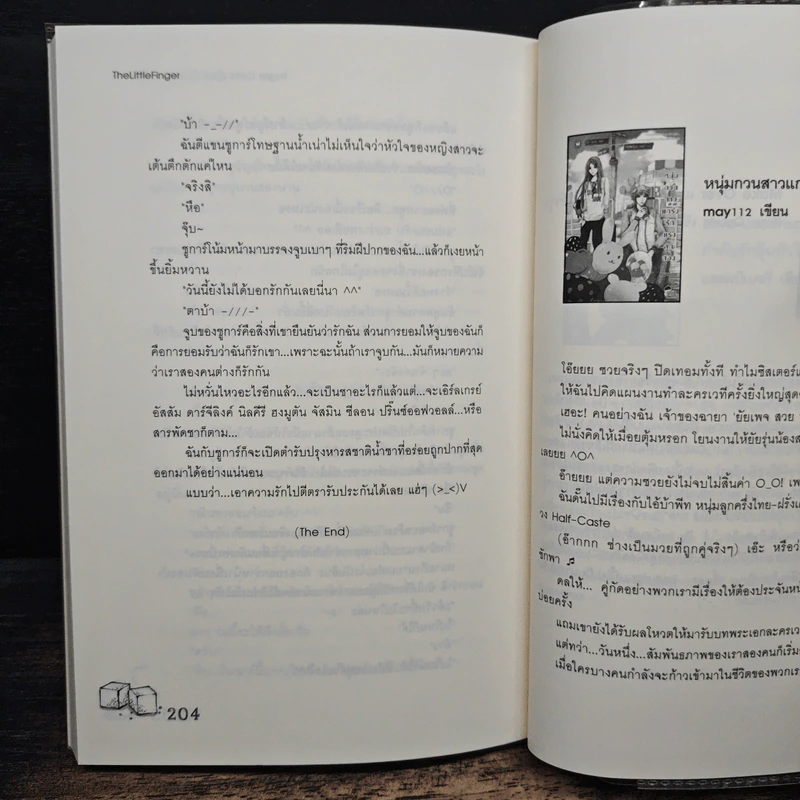 TheLittleFinger
"บ้า -_-//"
ฉันตีแขนชูการ์โทษฐานน้ำเน่าไม่เห็นใจว่าหัวใจของหญิงสาวจะ
เต้นตึกตักแค่ไหน
"จริงสิ"
"หือ"
จุ๊บ~
ชูการ์โน้มหน้ามาบรรจงจูบเบาๆ ที่ริมฝีปากของฉัน...แล้วก็เงยหน้า
ขึ้นยิ้มหวาน
"วันนี้ยังไม่ได้บอกรักกันเลยนี่นา ^^"
"ตาบ้า -///-"
จูบของชูการ์คือสิ่งที่เขายืนยันว่ารักฉัน ส่วนการยอมให้จูบของฉันก็
คือการยอมรับว่าฉันก็รักเขา...เพราะฉะนั้นถ้าเราจูบกัน...มันก็หมายความ
ว่าเราสองคนต่างก็รักกัน
ไม่หวั่นไหวอะไรอีกแล้ว...จะเป็นชาอะไรก็แล้วแต่...จะเอิร์ลเกรย์
อัสสัม ดาร์จีลิงค์ นิลคีรี ฮงมูตัน จัสมิน ซีลอน ปริ๊นซ์ออฟวอลล์...หรือ
สารพัดชาก็ตาม...
ฉันกับชูการ์ก็จะเปิดตำรับปรุงหารสชาติน้ำชาที่อร่อยถูกปากที่สุด
ออกมาได้อย่างแน่นอน
แบบว่า...เอาความรักไปตีตรารับประกันได้เลย แฮ่ๆ (>_<)V
(The End)
204
หนุ่มกวนสาวแก
may112 เขียน
โอ๊ยยย ซวยจริงๆ ปิดเทอมทั้งที ทำไมซิสเตอร์
ให้ฉันไปคิดแผนงานทำละครเวทีครั้งยิ่งใหญ่สุด
เฮอะ! คนอย่างฉัน เจ้าของฉายา 'ยัยเพจ สวย
ไม่นั่งคิดให้เมื่อยตุ้มหรอก โยนงานให้ยัยรุ่นน้อง
เลยยย ^O^
อ๊ายยย แต่ความซวยยังไม่จบไม่สิ้นค่า O_O! เพ
ฉันดั๊นไปมีเรื่องกับไอ้บ้าพีท หนุ่มลูกครึ่งไทย-ฝรั่ง
วง Half-Caste
(อ๊ากกก ช่างเป็นมวยที่ถูกคู่จริงๆ) เอ๊ะ หรือว่
รักพา ♫
ดลให้... คู่กัดอย่างพวกเรามีเรื่องให้ต้องประจันหน้
บ่อยครั้ง
แถมเขายังได้รับผลโหวตให้มารับบทพระเอกละครเว
แต่ทว่า...วันหนึ่ง...สัมพันธภาพของเราสองคนก็เริ่ม
เมื่อใครบางคนกำลังจะก้าวเข้ามาในชีวิตของพวกเร